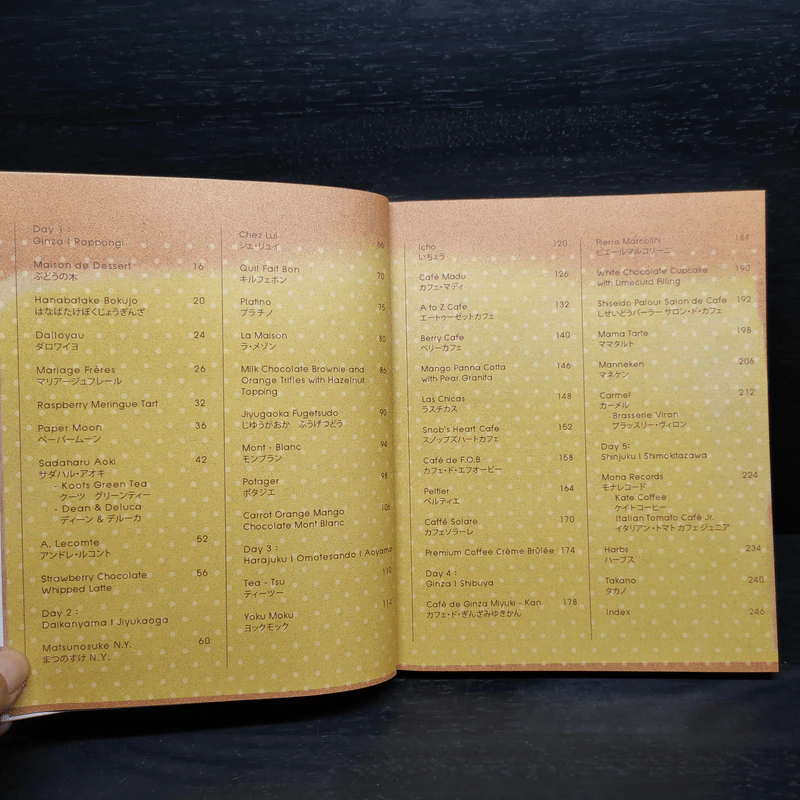 Day 1 :
Ginza | Roppongi
Maison de Dessert 16
ぶどうの木
Hanabatake Bokujo 20
はなばたけぼくじょうぎんざ
Dalloyau 24
ダロワイヨ
Mariage Frères 26
マリアージュフレール
Raspberry Meringue Tart 32
Paper Moon 36
ペーパームーン
Sadaharu Aoki 42
サダハル・アオキ
- Koots Green Tea
クーツ グリーンティー
- Dean & Deluca
ディーン & デルーカ
A. Lecomte 52
アンドレ・ルコント
Strawberry Chocolate 56
Whipped Latte
Day 2 :
Daikanyama | Jiyukaoga
Matsunosuke N.Y. 60
まつのすけ N.Y.
Chez Lui 66
シェ・リュイ
Quil Fait Bon 70
キルフェボン
Platino 75
プラチノ
La Maison 80
ラ・メゾン
Milk Chocolate Brownie and 86
Orange Trifles with Hazelnut
Topping
Jiyugaoka Fugetsudo 90
じゆうがおか ふうげつどう
Mont - Blanc 94
モンブラン
Potager 98
ポタジエ
Carrot Orange Mango 106
Chocolate Mont Blanc
Day 3 :
Harajuku | Omotesando | Aoyama
Tea - Tsu 110
ティーツー
Yoku Moku 114
ヨックモック
Icho 120
いちょう
Café Madu 126
カフェ・マディ
A to Z Cafe 132
エートゥーゼットカフェ
Berry Cafe 140
ベリーカフェ
Mango Panna Cotta 146
with Pear Granita
Las Chicas 148
ラスチカス
Snob's Heart Cafe 152
スノッブズハートカフェ
Café de F.O.B 158
カフェ・ド・エフオービー
Peltier 164
ペルティエ
Caffé Solare 170
カフェソラーレ
Premium Coffee Crème Brûlée 174
Day 4 :
Ginza | Shibuya
Café de Ginza Miyuki - Kan 178
カフェ・ド・ぎんざみゆきかん
Pierre Marcolini 184
ピエールマルコリーニ
White Chocolate Cupcake 190
with Limecuta Filling
Shiseido Palour Salon de Cafe 192
しせいどうパーラー サロン・ド・カフェ
Mama Tarte 198
ママタルト
Manneken 206
マネケン
Carmel 212
カーメル
Brasserie Viron
ブラッスリー・ヴィロン
Day 5:
Shinjuku | Shimokitazawa
Mona Records 224
モナレコード
Kate Coffee
ケイトコーヒー
Italian Tomato Café Jr.
イタリアン・トマト カフェ ジュニア
Harbs 234
ハーブス
Takano 240
タカノ
Index 246